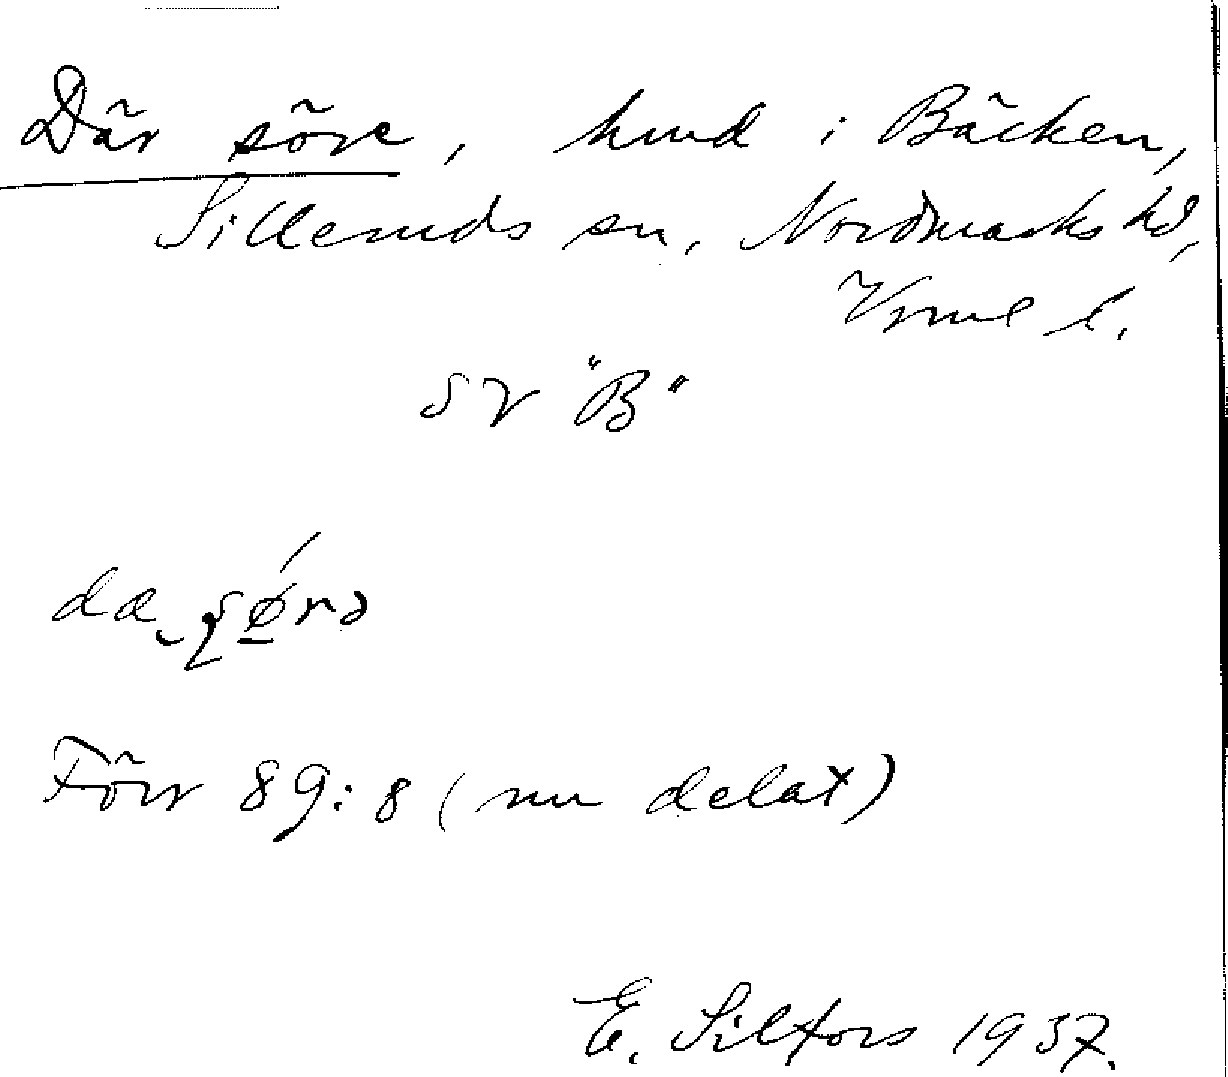 Där söre, hmd i Bäcken,
Silleruds sn, Nordmarks hd,
Vrml l.
SV "B"
Förr 89:8 (nu delat)
E. Silfors 1937.